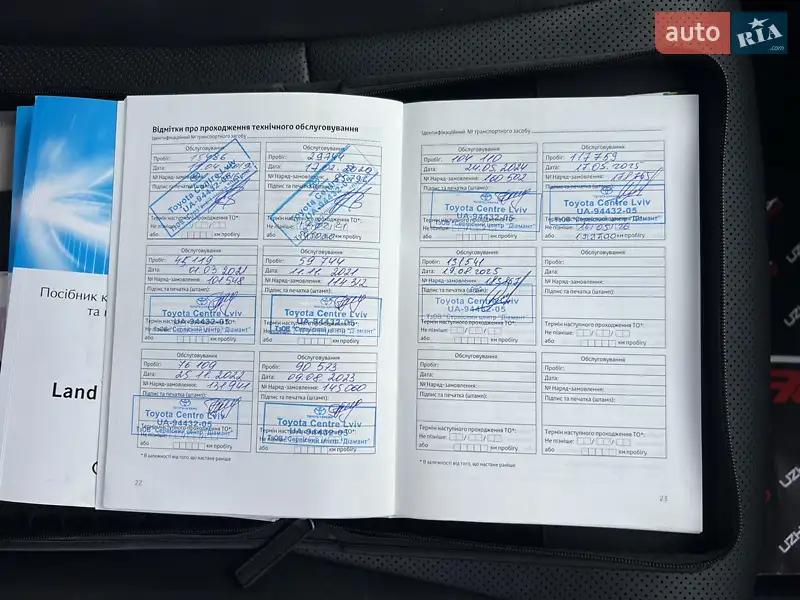 auto RIA .com
Посібник к
та
Land
Відмітки про проходження технічного обслуговування
Ідентифікаційний № транспортного засобу
Обслуговування
Пробіг:
Дата:
№ Наряд-замовлення:
Підпис та печатка (штамп):
Toyota Centre Lviv
UA-94432-05
Термін наступного проходження ТО*:
Не пізніше:
або км пробігу
Обслуговування
Пробіг: 29744
Дата:
№ Наряд-замовлення:
Підпис та печатка (штамп):
Toyota Centre Lviv
UA-94432-05
або км пробігу
Обслуговування
Пробіг: 45 119
Дата: 01.03 2021
№ Наряд-замовлення: 101548
Підпис та печатка (штамп):
Toyota Centre Lviv
UA-94432-05
ТзОВ "Сервісний центр "Діамант"
або км пробігу
Обслуговування
Пробіг: 59 744
Дата: 11.11 2021
№ Наряд-замовлення: 114312
Підпис та печатка (штамп):
Toyota Centre Lviv
UA-94432-05
ТзОВ "Сервісний центр "Діамант"
або км пробігу
Обслуговування
Пробіг: 76 109
Дата: 25.11 2022
№ Наряд-замовлення: 131941
Підпис та печатка (штамп):
Toyota Centre Lviv
UA-94432-05
ТзОВ "Сервісний центр "Діамант"
або км пробігу
Обслуговування
Пробіг: 90 573
Дата: 09.08 2023
№ Наряд-замовлення: 145060
Підпис та печатка (штамп):
Toyota Centre Lviv
UA-94432-05
ТзОВ "Сервісний центр "Діамант"
або км пробігу
* В залежності від того, що настане раніше
22
Ідентифікаційний № транспортного засобу
Обслуговування
Пробіг: 104 110
Дата: 24.05 2024
№ Наряд-замовлення: 160502
Підпис та печатка (штамп):
Toyota Centre Lviv
UA-94432-05
ТзОВ "Сервісний центр "Діамант"
або км пробігу
Обслуговування
Пробіг: 117759
Дата: 17.03 2025
№ Наряд-замовлення:
Підпис та печатка (штамп):
Toyota Centre Lviv
UA-94432-05
ТзОВ "Сервісний центр "Діамант"
або км пробігу
Обслуговування
Пробіг: 131541
Дата: 19.08 2025
№ Наряд-замовлення:
Підпис та печатка (штамп):
Toyota Centre Lviv
UA-94432-05
ТзОВ "Сервісний центр "Діамант"
Термін наступного проходження ТО*:
Не пізніше:
або км пробігу
Обслуговування
Пробіг:
Дата:
№ Наряд-замовлення:
Підпис та печатка (штамп):
Термін наступного проходження ТО*:
Не пізніше:
або км пробігу
Обслуговування
Пробіг:
Дата:
№ Наряд-замовлення:
Підпис та печатка (штамп):
Термін наступного проходження ТО*:
Не пізніше:
або км пробігу
Обслуговування
Пробіг:
Дата:
№ Наряд-замовлення:
Підпис та печатка (штамп):
Термін наступного проходження ТО*:
Не пізніше:
або км пробігу
* В залежності від того, що настане раніше
23